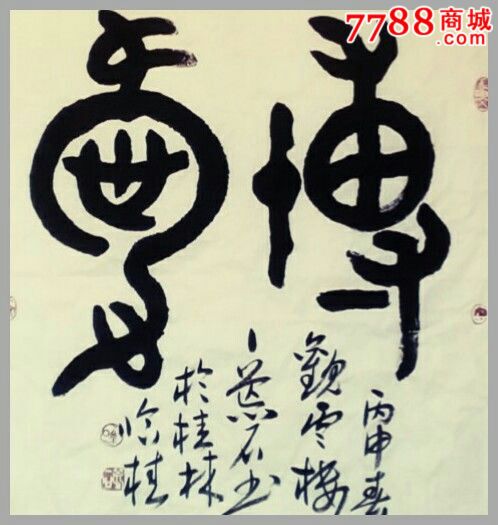 博愛
丙申春
觀雲樓
石书
於桂林
临桂
7788商城
.com